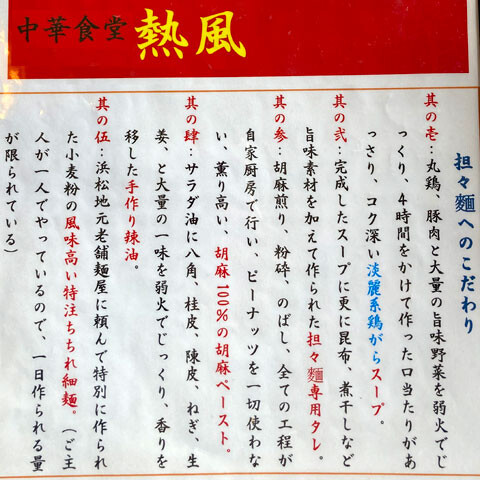 中華食堂 熱風
担々麺へのこだわり
其の壱:丸鶏、豚肉と大量の旨味野菜を弱火でじ
っくり、4時間をかけて作った口当たりがあ
っさり、コク深い淡麗系鶏がらスープ。
其の弐:完成したスープに更に昆布、煮干しなど
旨味素材を加えて作られた担々麺専用タレ。
其の参:胡麻煎り、粉砕、のばし、全ての工程が
自家厨房で行い、ピーナッツを一切使わな
い、薫り高い、胡麻100%の胡麻ペースト。
其の肆:サラダ油に八角、桂皮、陳皮、ねぎ、生
姜、と大量の一味を弱火でじっくり、香りを
移した手作り辣油。
其の伍:浜松地元老舗麺屋に頼んで特別に作られ
た小麦粉の風味高い特注ちぢれ細麺。(ご主
人が一人でやっているので、一日作られる量
が限られている)